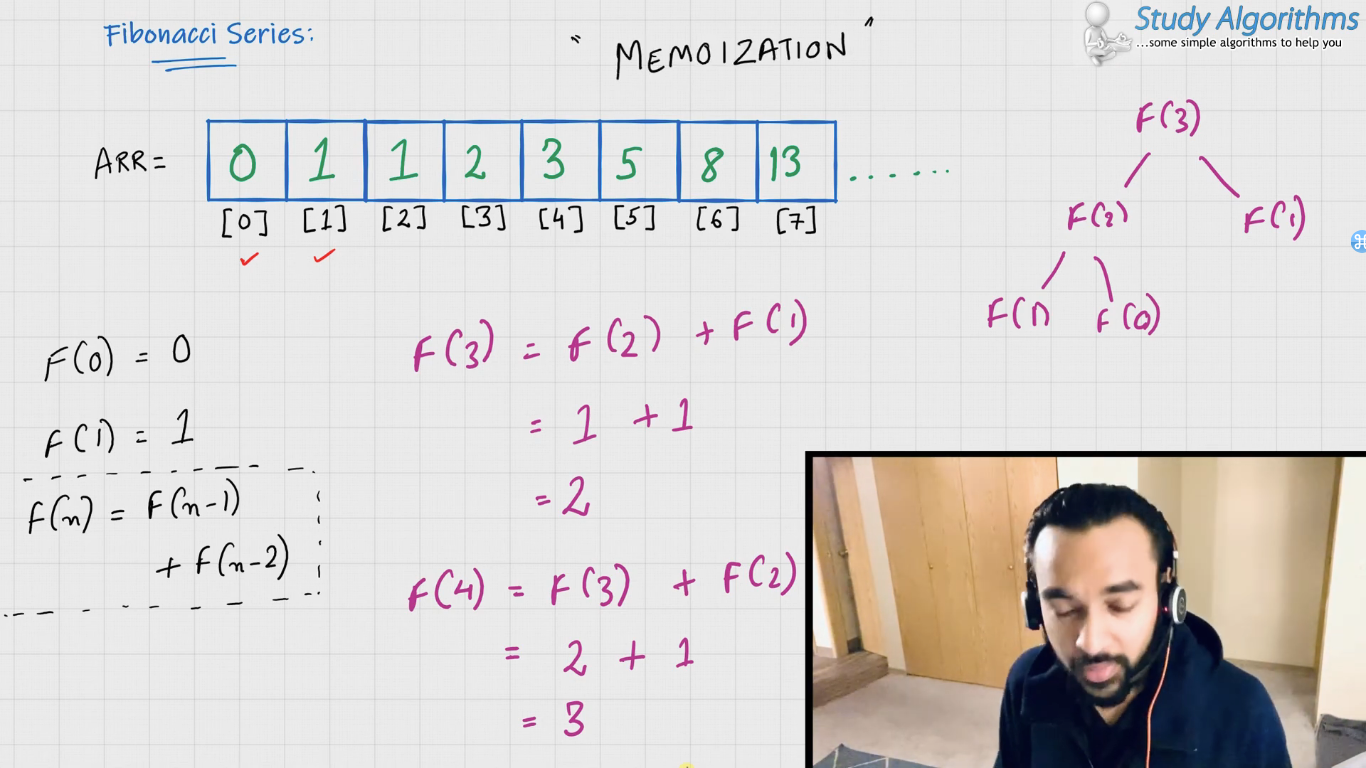 Fibonacci Series:
" MEMOIZATION "
Study Algorithms
...some simple algorithms to help you
ARR = 0 1 1 2 3 5 8 13 .......
[0] [1] [2] [3] [4] [5] [6] [7]
F(3)
F(2) F(1)
F(1) F(0)
F(0) = 0
F(1) = 1
F(n) = F(n-1)
+ F(n-2)
F(3) = F(2) + F(1)
= 1 + 1
= 2
F(4) = F(3) + F(2)
= 2 + 1
= 3